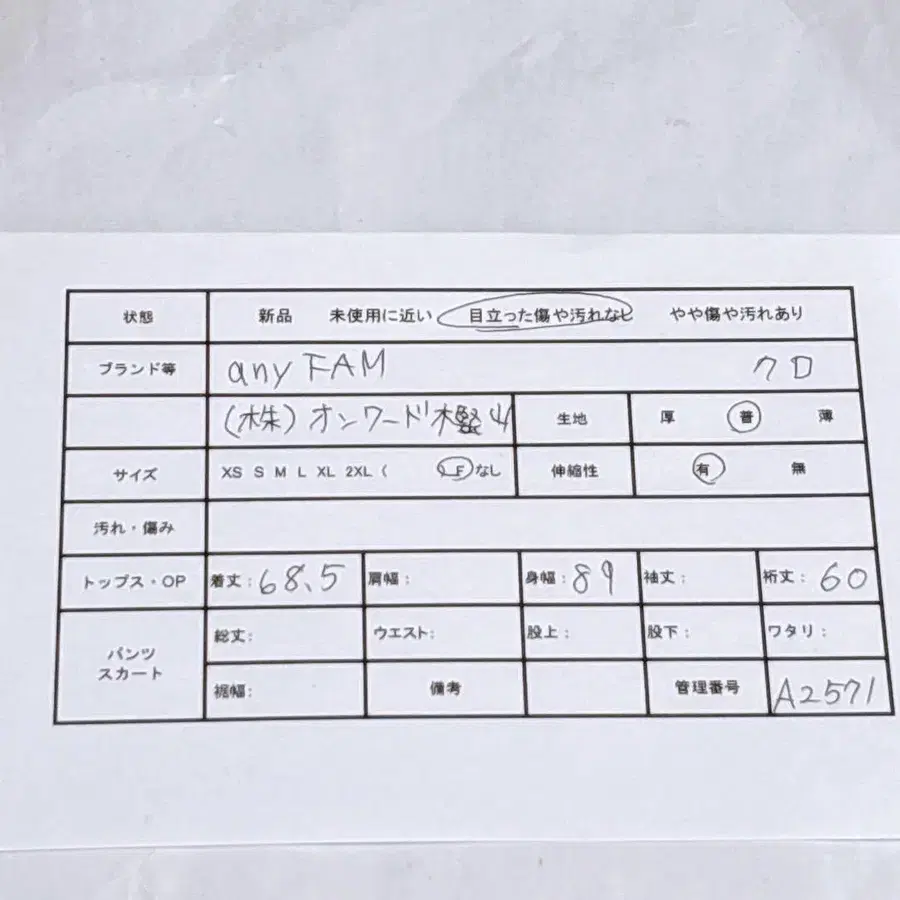 状態 新品 未使用に近い 目立った傷や汚れなし やや傷や汚れあり
ブランド等 any FAM クロ
(株)オンワード樫山 生地 厚 普 薄
サイズ XS S M L XL 2XL ( F なし 伸縮性 有 無
汚れ・傷み
トップス・OP 着丈:68.5 肩幅: 身幅:89 袖丈: 裄丈:60
パンツ スカート 総丈: ウエスト: 股上: 股下: ワタリ:
裾幅: 備考 管理番号 A2571